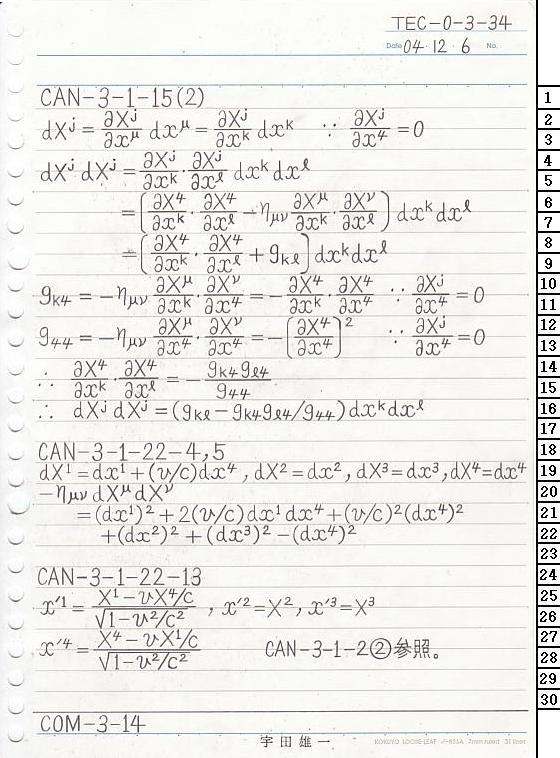 TEC-0-3-34
Date 04・12・6 No.
CAN-3-1-15(2)
dX^j = ∂X^j/∂x^μ dx^μ = ∂X^j/∂x^k dx^k ∵ ∂X^j/∂x^4 = 0
dX^j dX^j = ∂X^j/∂x^k・∂X^j/∂x^ℓ dx^k dx^ℓ
= [∂X^4/∂x^k・∂X^4/∂x^ℓ − η_μν ∂X^μ/∂x^k・∂X^ν/∂x^ℓ] dx^k dx^ℓ
= [∂X^4/∂x^k・∂X^4/∂x^ℓ + g_kℓ] dx^k dx^ℓ
g_k4 = −η_μν ∂X^μ/∂x^k・∂X^ν/∂x^4 = −∂X^4/∂x^k・∂X^4/∂x^4 ∵ ∂X^j/∂x^4 = 0
g_44 = −η_μν ∂X^μ/∂x^4・∂X^ν/∂x^4 = −[∂X^4/∂x^4]^2 ∵ ∂X^j/∂x^4 = 0
∴ ∂X^4/∂x^k・∂X^4/∂x^ℓ = −g_k4 g_ℓ4/g_44
∴ dX^j dX^j = (g_kℓ − g_k4 g_ℓ4/g_44) dx^k dx^ℓ
CAN-3-1-22-4,5
dX^1 = dx^1 + (v/c)dx^4, dX^2 = dx^2, dX^3 = dx^3, dX^4 = dx^4
−η_μν dX^μ dX^ν
= (dx^1)^2 + 2(v/c)dx^1 dx^4 + (v/c)^2(dx^4)^2
+ (dx^2)^2 + (dx^3)^2 − (dx^4)^2
CAN-3-1-22-13
x'^1 = (X^1 − vX^4/c)/√(1−v^2/c^2), x'^2 = X^2, x'^3 = X^3
x'^4 = (X^4 − vX^1/c)/√(1−v^2/c^2) CAN-3-1-2②参照。
COM-3-14
宇田雄一
KOKUYO LOOSE-LEAF ノ-836A 7mm ruled 31 lines
1
2
3
4
5
6
7
8
9
10
11
12
13
14
15
16
17
18
19
20
21
22
23
24
25
26
27
28
29
30